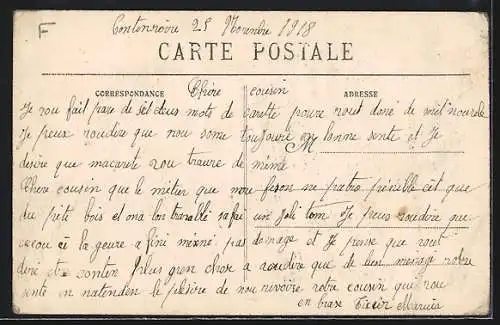 F
25 Novembre 1918
CARTE POSTALE
CORRESPONDANCE
ADRESSE
Chère cousin
Je vou fait pare de sèt deus mots de carette poure vout doné de mèit nouvele
Je peux voudire que nou some toujours en bonne sente et Je
desire que macarete vou trauve de même
Chère cousin que le métier que nou feson ne patro pénible cèt que
du pète bois et on a bon travallé sa fai une Joli tom Je peus voudire que
la geure a fini même pas domage et Je pense que vout
devé etre conten plus gran chose a voudire que de bien
sente en natenden le plésire de nou revoire votre cousin que vou
en brase